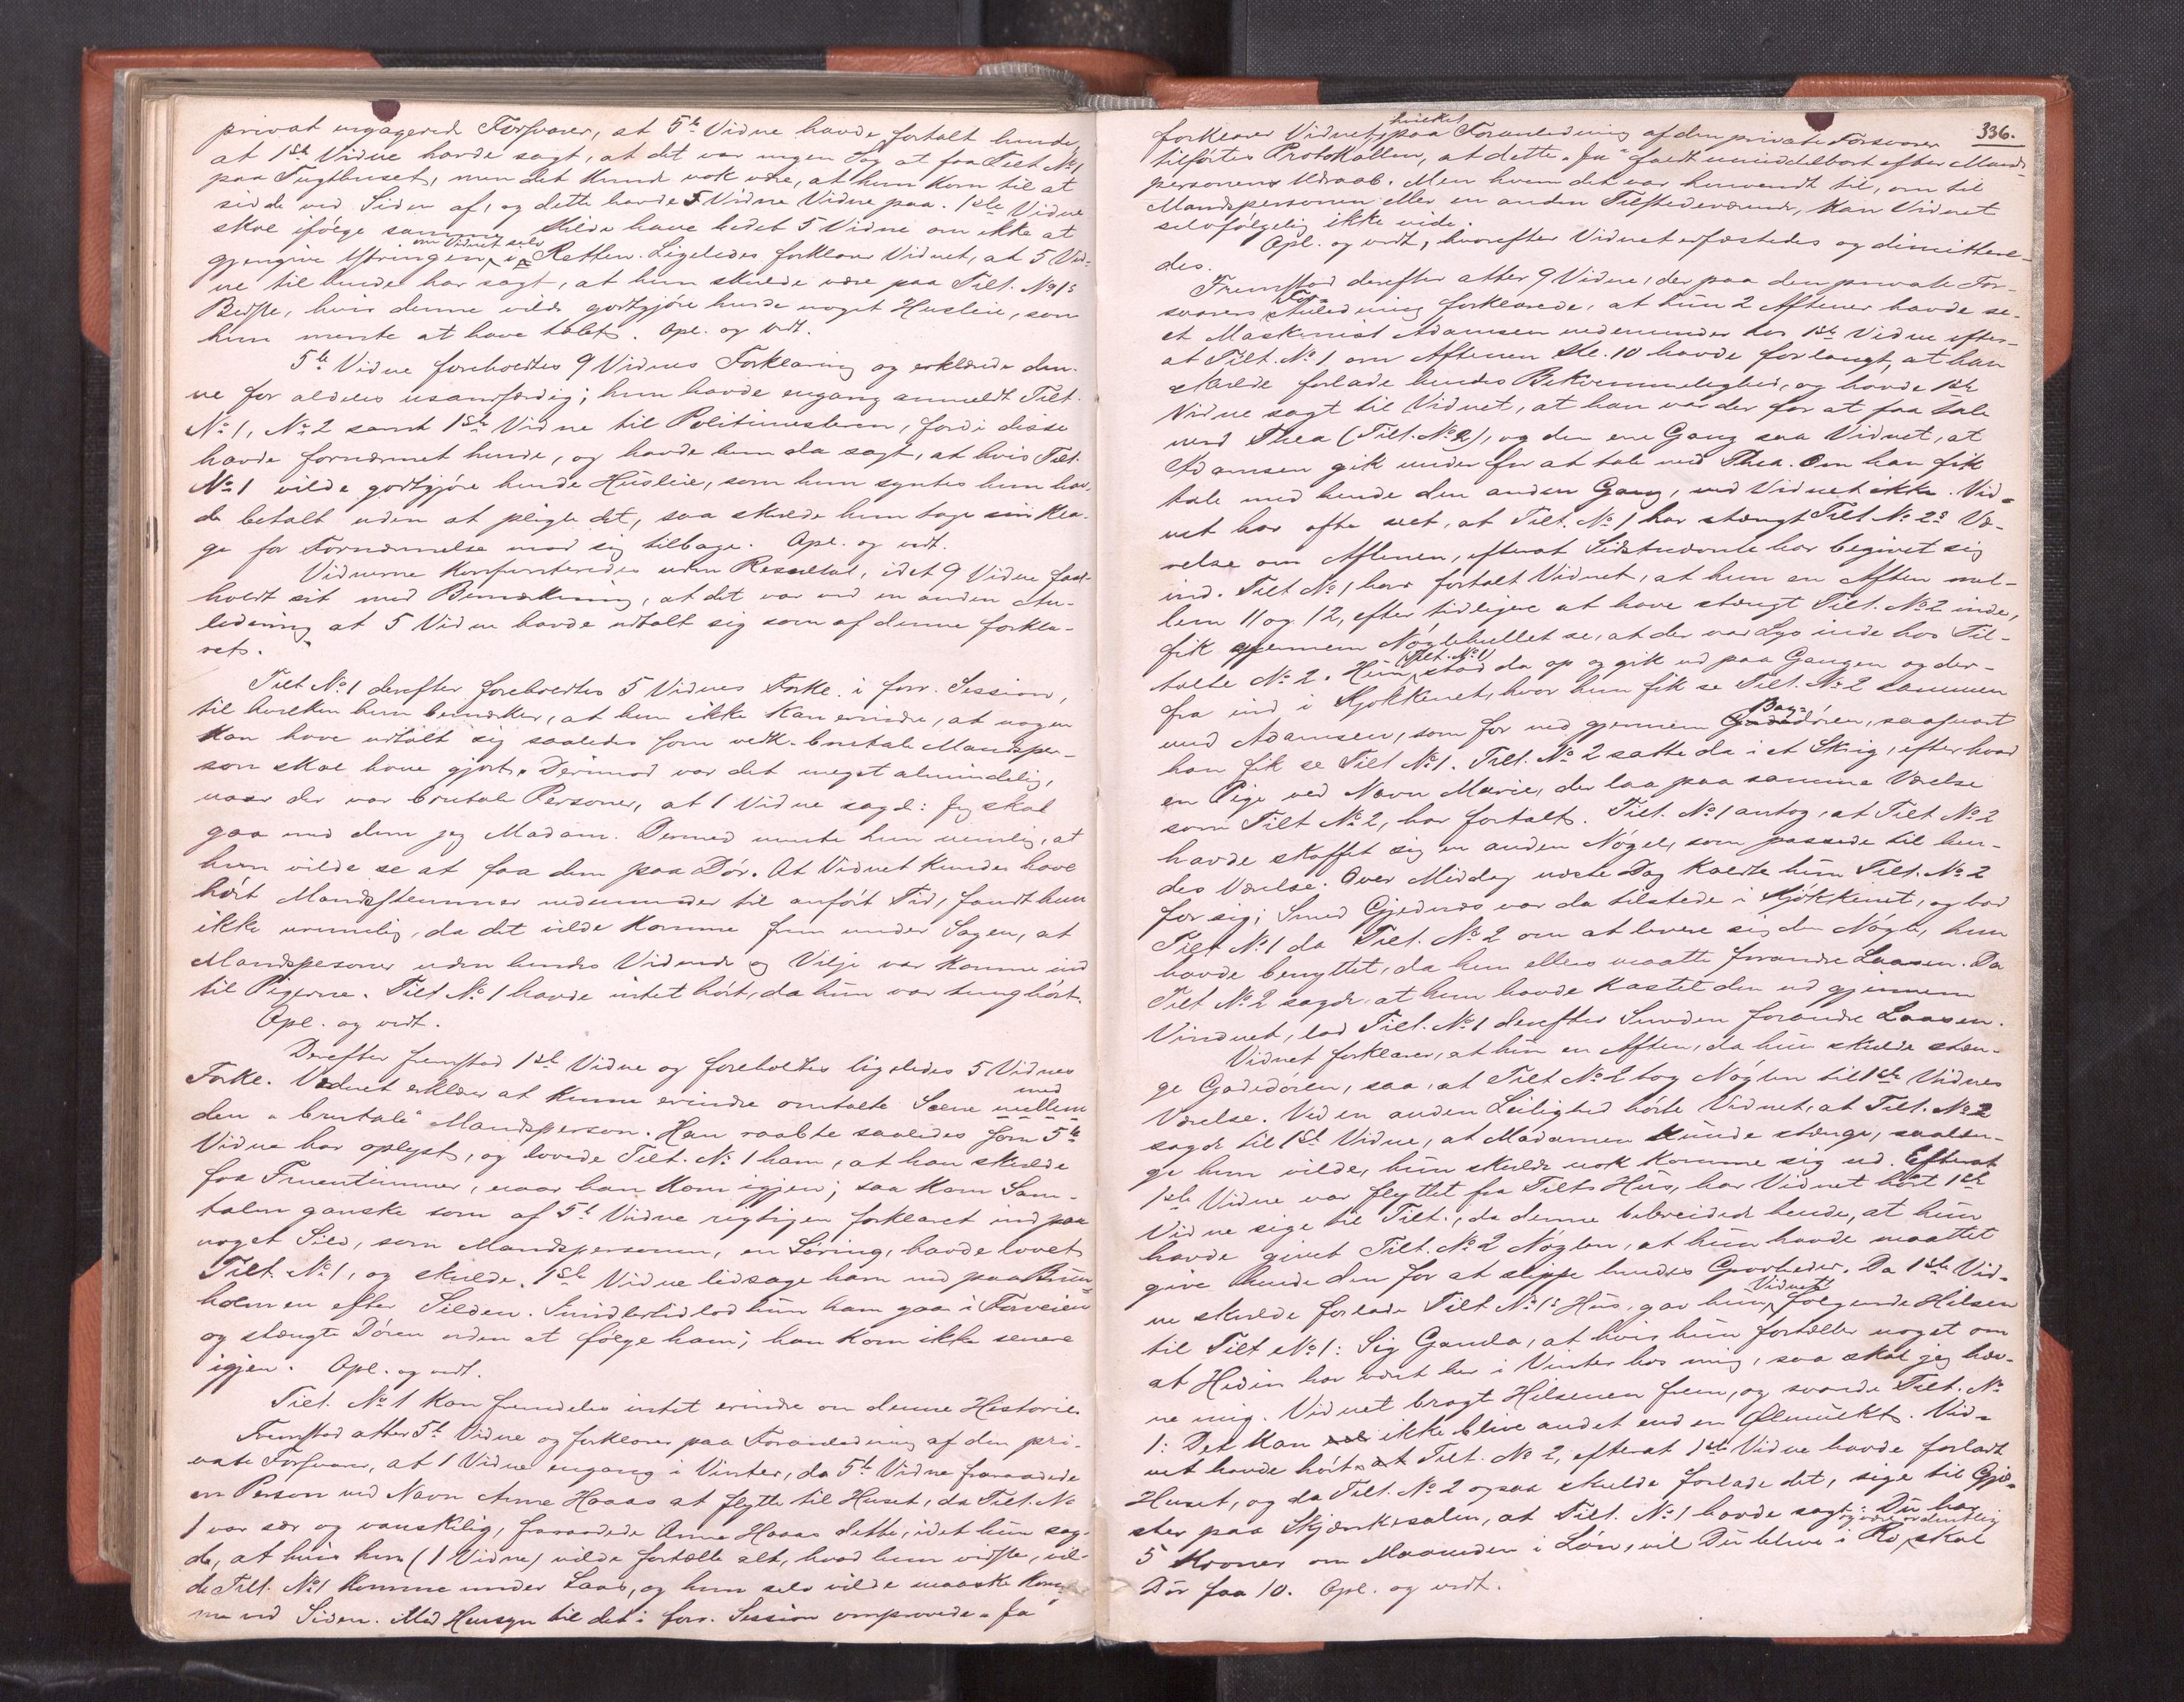 privat engagerede Forsvarer, at 5te Vidne havde fortalt hende,
at 1ste Vidne havde sagt, at det var ingen Sag at faa Tilt No 1
paa Tugthuset, men det kunde nok være, at hun kom til at
sidde ved Siden af, og dette havde 5 Vidne Vidne paa. 1ste Vidne
skal ifölge samme Kilde have bedet 5 Vidne om ikke at
gjengive Ytringen, om Vidnet selv i Retten. Ligeledes forklarer Vidnet, at 5 Vid-
ne til hende har sagt, at hun skulde være paa Tilt. No 1s
Bedste, hvis denne vilde godtgjöre hende noget Husleie, som
hun mente at have tabt. Opl. og vedt.
5te Vidne foreholdtes 9 Vidnes Forklaring og erklærede den-
ne for aldeles usandfærdig; hun havde engang anmeldt Tilt.
No 1, No 2 samt 1ste Vidne til Politimesteren, fordi disse
havde fornærmet hende, og havde hun da sagt, at hvis Tilt.
No 1 vilde godtgjöre hende Husleie, som hun syntes hun hav-
de betalt uden at pligte det, saa skulde hun tage sin Kla-
ge for Fornærmelse mod sig tilbage. Opl. og vedt.
Vidnerne konfronteredes uden Resultat, idet 9 Vidne fast-
holdt sit med Bemærkning, at det var ved en anden An-
ledning at 5 Vidne havde udtalt sig som af denne forkla-
ret.
Tilt No 1 derefter foreholdtes 5 Vidnes Forkl. i forr. Session,
til hvilken hun bemærker, at hun ikke kan erindre, at nogen
kan have udtalt sig saaledes som vedk. brutale Mandsper-
son skal have gjort. Derimod var det meget almindelig,
naar der var brutale Personer, at 1 Vidne sagde: Jeg skal
gaa med dem jeg Madam. Dermed mente hun nemlig, at
hun vilde se at faa dem paa Dör. At Vidnet kunde have
hört Mandsstemmer nedenunder til anfört Tid, fandt hun
ikke urimelig, da det vilde komme frem under Sagen, at
Mandspersoner uden hendes Vidende og Vilje var komne ind
til Pigerne. Tilt No 1 havde intet hört, da hun var tunghört.
Opl. og vedt.
Derefter fremstod 1ste Vidne og foreholdtes ligeledes 5 Vidnes
Forkl. Vidnet erklærer at kunne erindre omtalte Scene mellem med
den "brutale" Mandsperson. Han raabte saaledes som 5te
Vidne har oplyst, og lovede Tilt. No 1 ham, at han skulde
faa Fruentimmer, naar han kom igjen; saa kom Sam-
talen ganske som af 5te Vidne rigtigen forklaret ind paa
noget Sild, som Mandspersonen, en Söring, havde lovet
Tilt. No 1, og skulde 1ste Vidne ledsage ham ned paa Brun-
holmen efter Silden. Imidlertid lod hun ham gaa i Forveien
og stængte Dören uden at fölge ham; han kom ikke senere
igjen. Opl. og vedt.
Tilt. No 1 kan fremdeles intet erindre om denne Historie.
Fremstod atter 5te Vidne og forklarer paa Foranledning af den pri-
vate Forsvarer, at 1 Vidne engang i Vinter, da 5te Vidne fraraadede
en Person ved Navn Anna Haaas at flytte til Huset, da Tilt. No
1 var sær og vanskelig, fraraadede Anna Haaas dette, idet hun sag-
de, at hvis hun (1 Vidne) vilde fortælle alt, hvad hun vidste, vil-
de Tilt. No 1 komme under Laas, og hun selv vilde maaske kom-
me ved Siden. Med Hensyn til det i forr. Session omprovede "Ja"
336.
forklarer Vidnet, hvilket paa Foranledning af den private Forsvarer
tilförtes Protokollen, at dette "Ja" faldt umiddelbart efter Mands-
personens Udraab. Men hvem det var henvendt til, om til
Mandspersonen eller en anden Tilstedeværende, kan Vidnet
selvfölgelig ikke vide.
Opl. og vedt, hvorefter Vidnet erfæstedes og dimittere-
des.
Fremstod derefter atter 9 Vidne, der paa den private For-
svarers Anledning forklarede, at hun 2 Aftener havde se-
et Maskinist Adamsen nedenunder hos 1ste Vidne efter-
at Tilt. No 1 om Aftenen Kl. 10 havde forlangt, at han
skulde forlade hendes Bekvemmelighed, og havde 1ste
Vidne sagt til Vidnet, at han var der for at faa tale
med Thea (Tilt. No 2), og den ene Gang saa Vidnet, at
Adamsen gik under for at tale med Thea. Om han fik
tale med hende den anden Gang, ved Vidnet ikke. Vid-
net har ofte seet, at Tilt. No 1 har stængt Tilt No 2s Væ-
relse om Aftenen, efterat Sidstnævnte har begivet sig
ind. Tilt No 1 har fortalt Vidnet, at hun en Aften mel-
lem 11 og 12, efter tidligere at have stængt Tilt. No 2 inde,
fik gjennem Nöglehullet se, at der var Lys inde hos Til-
talte No 2. Hun (Tilt. No 1) stod da op og gik ud paa Gangen og der-
fra ind i Kjökkenet, hvor hun fik se Tilt. No 2 sammen
med Adamsen, som for ud gjennem Bag-dören, saasnart
han fik se Tilt No 1. Tilt. No 2 satte da i et Skrig, efter hvad
en Pige ved Navn Marie, der laa paa samme Værelse
som Tilt No 2, har fortalt. Tilt. No 1 antog, at Tilt No 2
havde skaffet sig en anden Nögel, som passede til hen-
des Værelse. Over Middag næste Dag kaldte hun Tilt. No 2
for sig; Smed Gjednæs var da tilstede i Kjökkenet, og bad
Tilt No 1 da Tilt. No 2 om at levere sig den Nögle, hun
havde benyttet, da hun ellers maatte forandre Laasen. Da
Tilt No 2 sagde, at hun havde kastet den ud gjennem
Vinduet, lod Tilt. No 1 derefter Smeden forandre Laasen.
Vidnet forklarer, at hun en Aften, da hun skulde stæn-
ge Gadedören, saa, at Tilt No 2 tog Nöglen til 1ste Vidnes
Værelse. Ved en anden Leilighed hörte Vidnet, at Tilt. No 2
sagde til 1ste Vidne, at Madamen kunde stænge, saalæn-
ge hun vilde, hun skulde nok komme sig ud. Efterat
1ste Vidne var flyttet fra Tilts Hus, har Vidnet hört 1ste
Vidne sige til Tilt., da denne bebreidede hende, at hun
havde givet Tilt. No 2 Nöglen, at hun havde maattet
give hende den for at slippe hendes Grovheder. Da 1ste Vid-
ne skulde forlade Tilt No 1s Hus, gav hun Vidnet fölgende Hilsen
til Tilt No 1: Sig Gamla, at hvis hun fortæller noget om
at Hedin har været her i Vinter hos mig, saa skal jeg hæv-
ne mig. Vidnet bragt Hilsenen frem, og svarede Tilt. No
1: Det kan ikke blive andet end en Ølmulkt. Vid-
net havde hört at Tilt. No 2, efterat 1ste Vidne havde forladt
Huset, og da Tilt. No 2 ogsaa skulde forlade det, sige til Gjæ-
ster paa Skjænkesalen, at Tilt. No 1 havde sagt: Du har
5 Kroner om Maaneden i Lön, vil Du blive i Ro og være ordentlig skal
Du faa 10. Opl. og vedt.